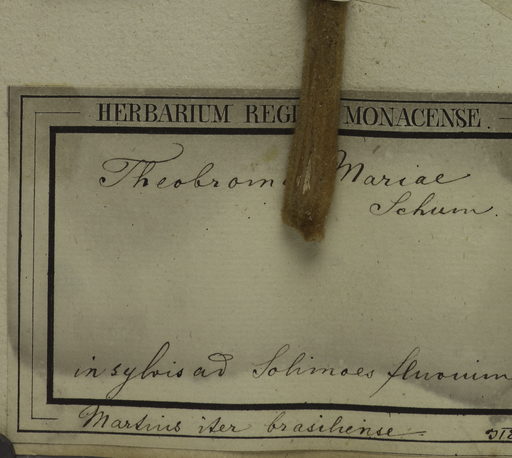 HERBARIUM REGI MONACENSE.
Theobrom Mariae
Schum.
in sylvis ad Solimoes fluvium
Martius iter brasiliense